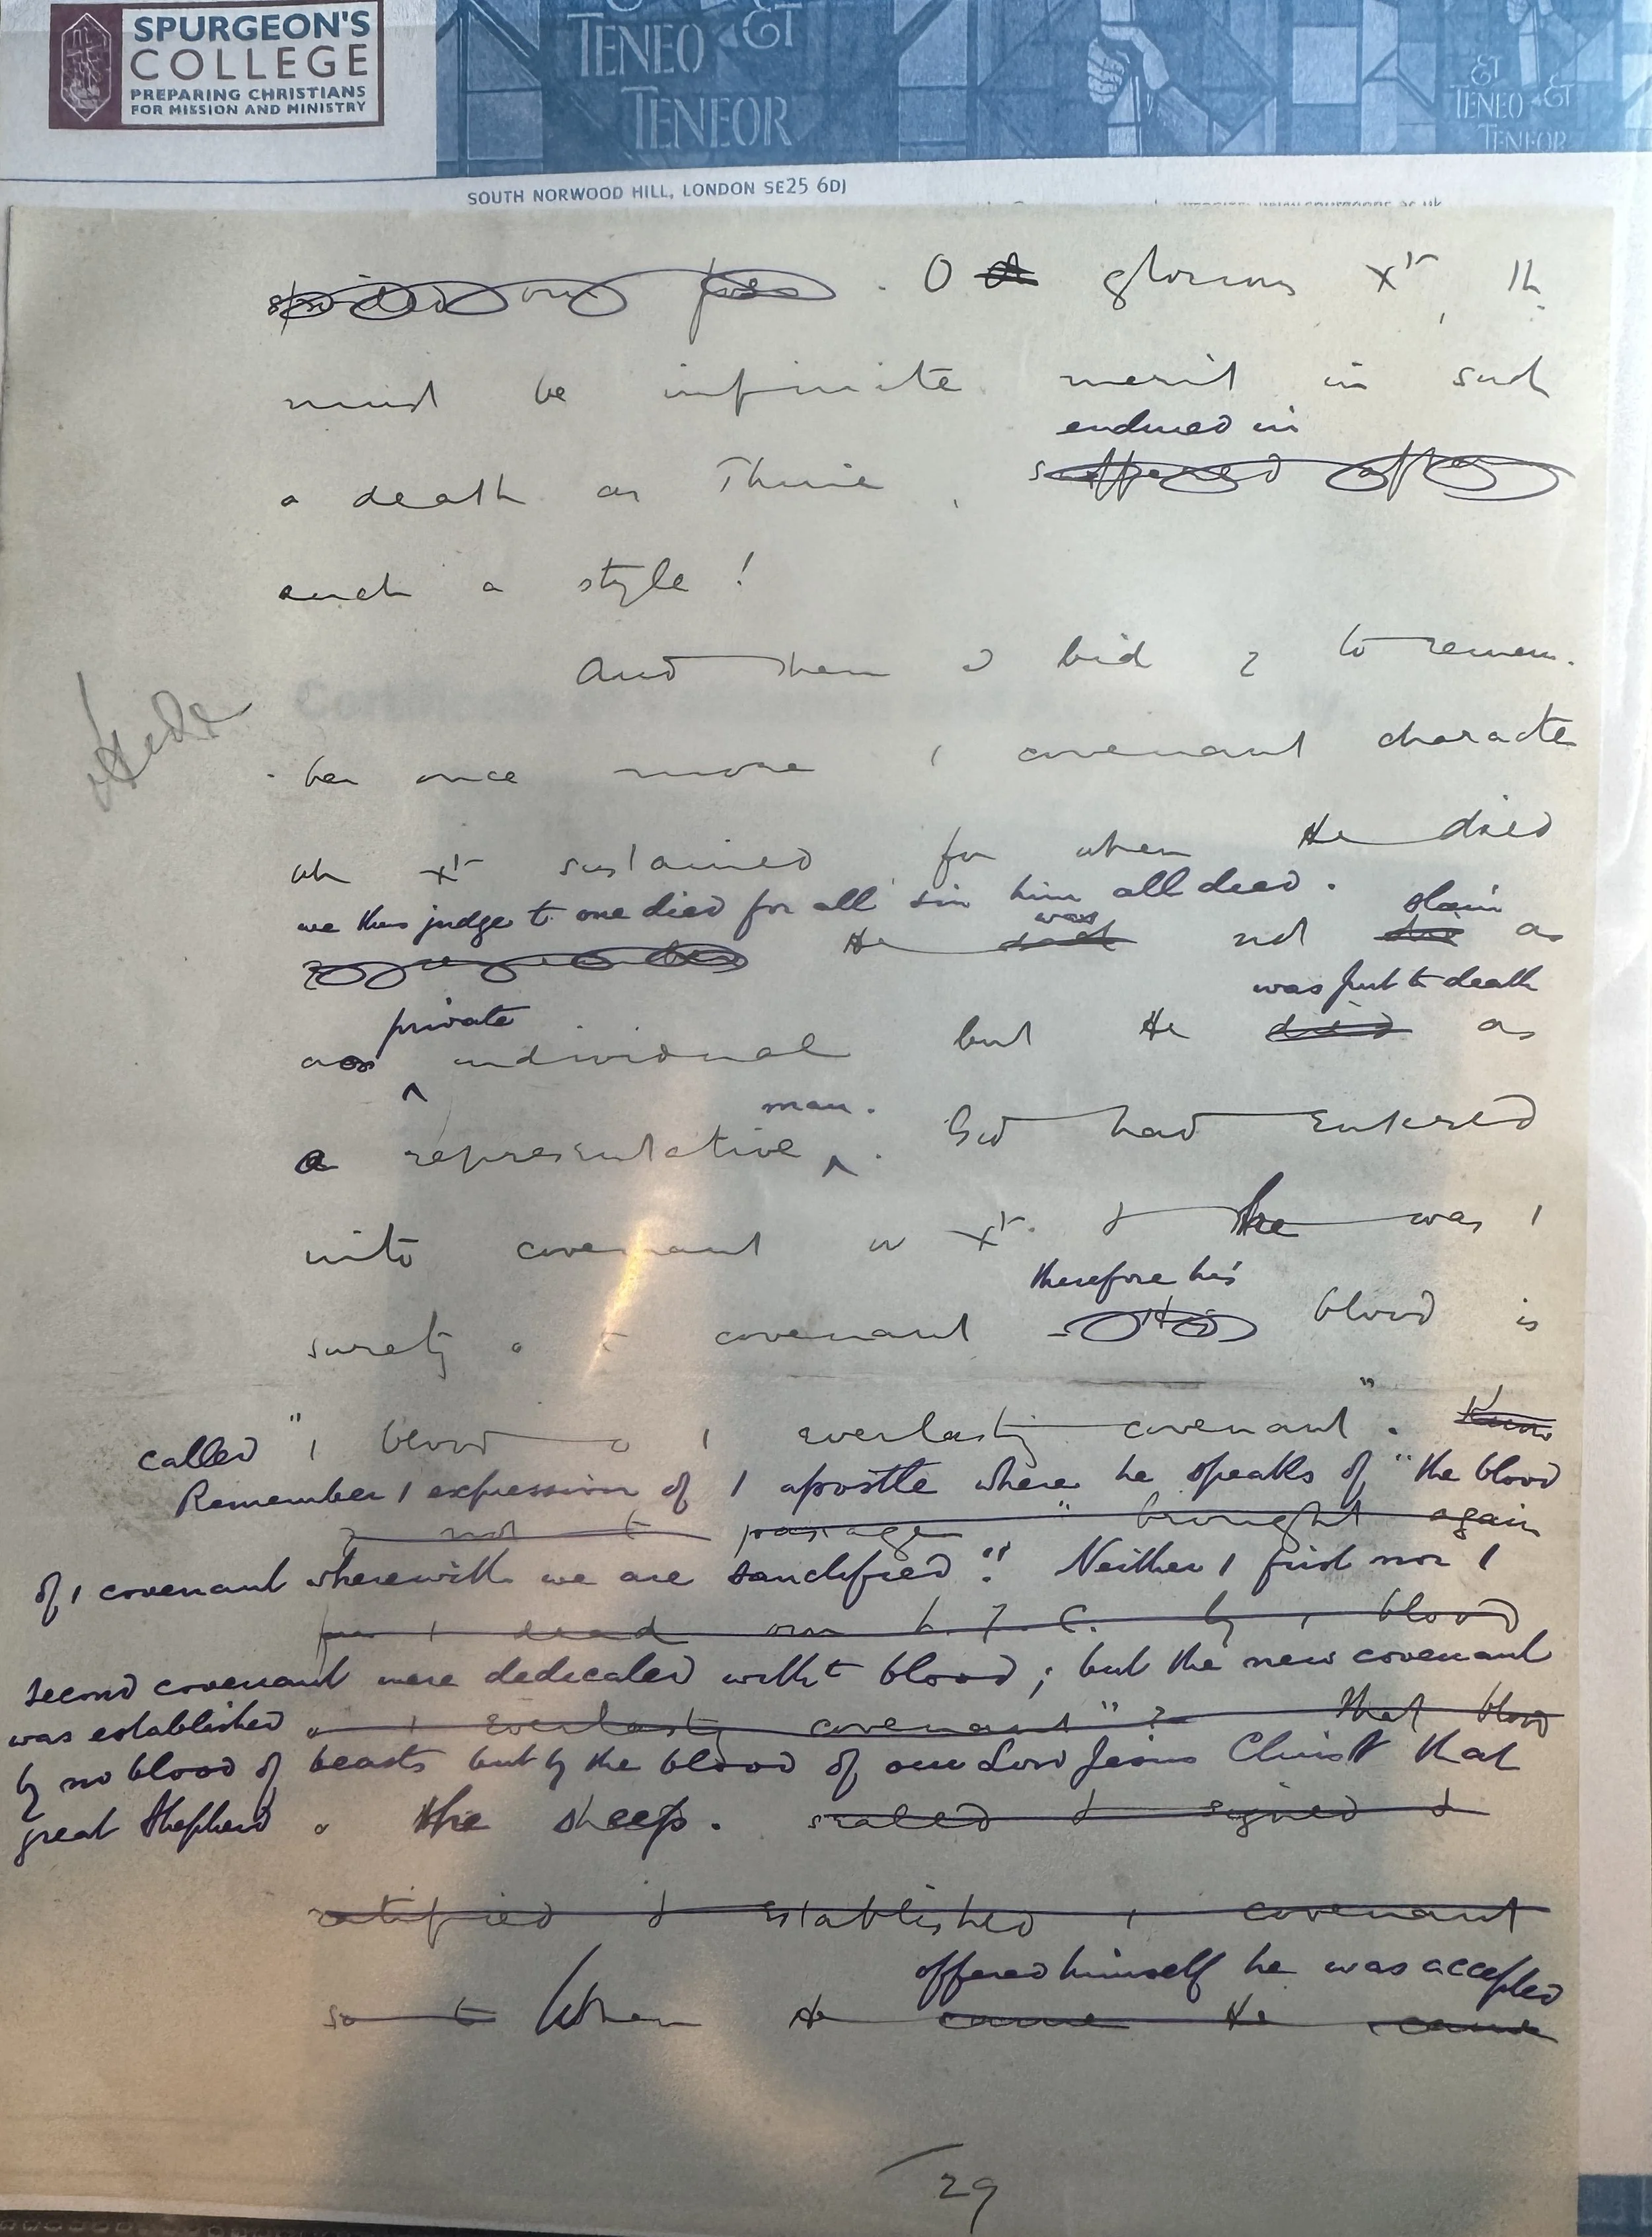 SPURGEON'S
COLLEGE
PREPARING CHRISTIANS
FOR MISSION AND MINISTRY
TENEO & ET
TENEOR
ET
TENEO & ET
TENEOR
SOUTH NORWOOD HILL, LONDON SE25 6DJ
our foes . O glorious Xt th
must be infinite merit in such
endured in
a death as Thine , suffered after
such a style !
And then I bid to remem.
ber once more , covenant characte
wh Xt sustained for when He died
we thus judge tt one died for all in him all died .
was slain
He not as
private was put to death
as individual but He died as
man .
a representative . God had entered
into covenant w Xt & he was ,
therefore his
surety o t covenant His blood is
called " , blood o , everlastg covenant " . Know
Remember , expression of , apostle where he speaks of " the blood
not t passage " brought again
of , covenant wherewith we are sanctified " . Neither , first nor ,
fm , dead our L. J. C. by , blood
second covenant were dedicated witht blood ; but the new covenant
was established o , everlastg covenant " ? That blood
by no blood of beasts but by the blood of our Lord Jesus Christ that
great Shepherd o the sheep . sealed & signed &
ratified & established , covenant
offered himself he was accepted
so t When He came He came
29